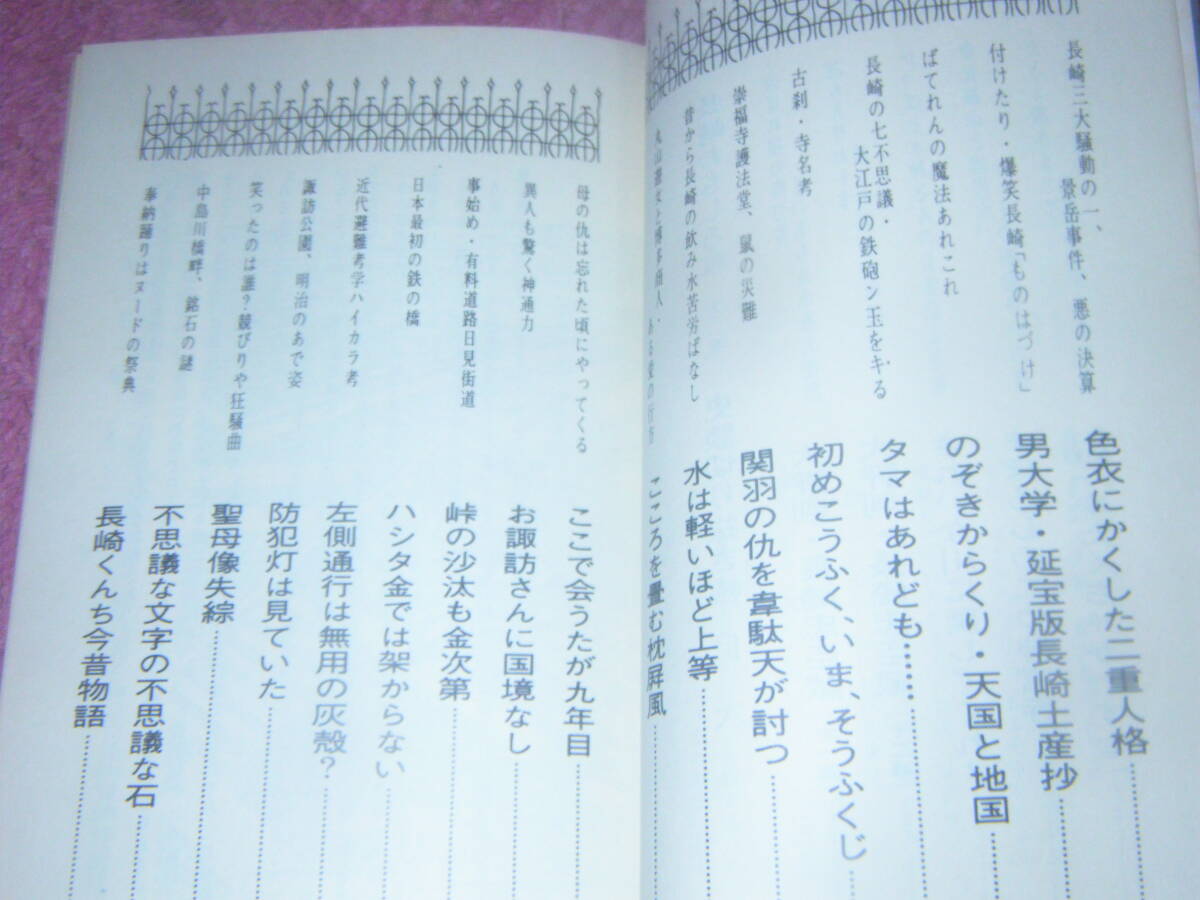 長崎三大騒動の一、
景岳事件、悪の決算
色衣にかくした二重人格
付けたり・爆笑長崎「ものはづけ」
男大学・延宝版長崎土産抄
ばてれんの魔法あれこれ
のぞきからくり・天国と地国
長崎の七不思議・
大江戸の鉄砲ン玉をキる
タマはあれども……
古刹・寺名考
初めこうふく、いま、そうふくじ
崇福寺護法堂、鼠の災難
関羽の仇を韋駄天が討つ
昔から長崎の飲み水苦労ばなし
水は軽いほど上等
丸山遊女と博多商人・ある愛の行方
こころを畳む枕屏風
母の仇は忘れた頃にやってくる
ここで会うたが九年目
異人も驚く神通力
お諏訪さんに国境なし
事始め・有料道路日見街道
峠の沙汰も金次第
日本最初の鉄の橋
ハシタ金では架からない
近代避難考学ハイカラ考
左側通行は無用の灰殻?
諏訪公園、明治のあで姿
防犯灯は見ていた
笑ったのは誰?競びりや狂騒曲
聖母像失綜
中島川橋畔、銘石の謎
不思議な文字の不思議な石
奉納踊りはヌードの祭典
長崎くんち今昔物語